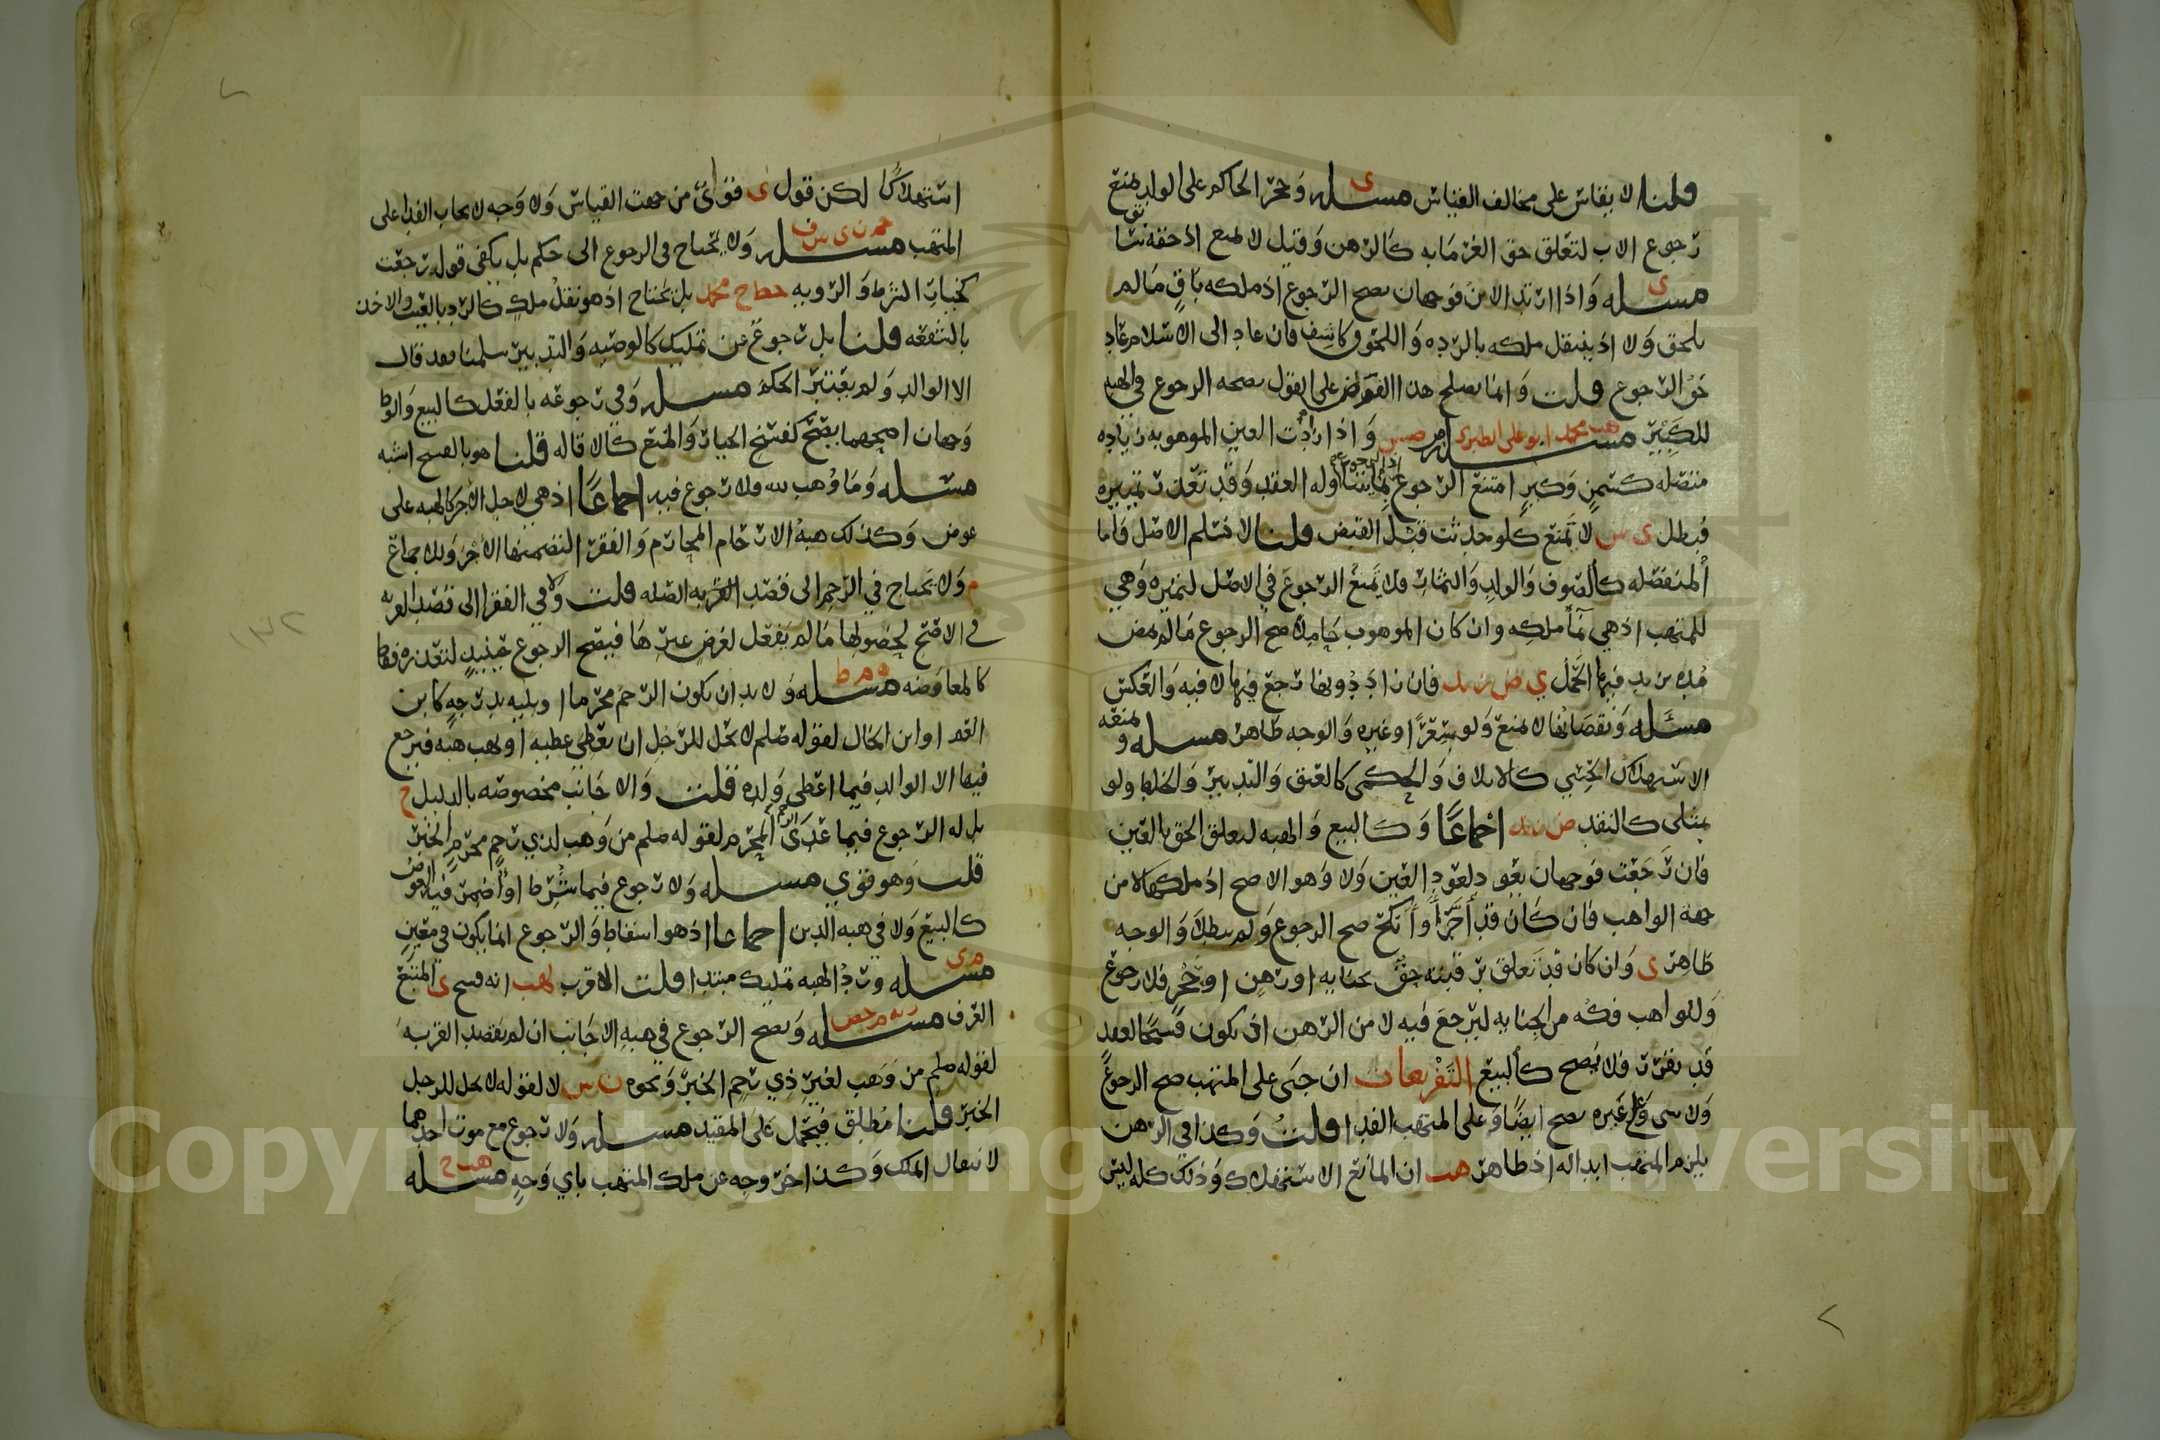 قلنا لا يقاس على مخالف القياس مسله ى وحجر الحاكم على الولد يمنع
رجوع الاب لتعلق حق الغرما به كالرهن وقيل لا يمنع اذ حقه
مسله ى واذا ارتد الابن فوجهان يصح الرجوع اذ ملكه باق مالم
يلحق ولا اذ ينتقل ملكه بالرده واللحوق كاشف فان عاد الى الاسلام عاد
حق الرجوع قلت وانما يصلح هذا على القول بصحه الرجوع في الهبه
للكبير مسله هب محمد ابو على الطبرى واذا زادت العين الموهوبه زياده
متصله كسمن وكبر امتنع الرجوع اوله العقد وقد تعذر تمييزه
فبطل ى س لا تمنع كلو حدثت قبل القبض قلنا لا نسلم الاصل فاما
المنفصله كالصوف والولد والثمار فلا يمنع الرجوع في الاصل لتميزه وهي
للمتهب اذ هي نما ملكه وان كان الموهوب حاملا صح الرجوع مالم يمض
مده يزيد فيها الحمل ي ض زيد فان زاد دونها رجع فيها لا فيه والعكس
مسله ونقصانها لا يمنع ولو سعرا او غيره والوجه ظاهر مسله و يمنعه
الاستهلاك الحسي كالاتلاف والحكمى كالعتق والتدبير والخلط ولو
بمثلى كالنقد ض زيد اجماعا وكالبيع والهبه لتعلق الحق بالعين
فان رجعت فوجهان يعود لعود العين ولا وهو الاصح اذ ملكها لا من
جهة الواهب فان كان قد أجر أو أنكح صح الرجوع ولم يبطلا والوجه
ظاهر ى وان كان قد تعلق برقبته حق بجنايه او رهن او حجر فلا رجوع
وللواهب فكه من الجنايه ليرجع فيه لا من الرهن اذ يكون فسخا لعقد
قد تقرر فلا يصح كالبيع التفريعات ان جنى على المتهب صح الرجوع
ولا شى وعلى غيره يصح ايضا وعلى المتهب الفدا قلت وكذا في الرهن
يلزم المتهب ابداله اذ ظاهر هب ان المانع الاستهلاك وذلك كله ليس
استهلاكا لكن قول ى قوى من جهت القياس ولا وجه لايجاب الفدا على
المتهب مسله ولا يحتاج في الرجوع الى حكم بل يكفي قوله رجعت
كخيار الشرط والرويه ح ط ا ح محمد بل يحتاج اذ هو نقل ملك كالرد بالعيب والاخذ
بالشفعه قلنا بل رجوع عن تمليك كالوصيه والتدبير سلمنا فقد قال
الا الوالد ولم يعتبر الحكم مسله وفي رجوعه بالفعل كالبيع والوط
وجهان اصحهما يصح كفسخ الخيار والمنع كالاقاله قلنا هو بالفسخ اشبه
مسله وما وهب لله فلا رجوع فيه اجماعا اذ هي لاجل الاجر كالهبه على
عوض وكذلك هبة الارحام المحارم والفقرا لتضمنها الاجر وللاجماع
م ولا يحتاج في الرحم الى قصد القربه الصله قلت ولا في الفقرا الى قصد القربه
في الاصح لحصولها مالم يفعل لغرض غيرها فيصح الرجوع حينيذ لتعذره فقط
كالمعاوضه مسله ه م ط ولا بد ان يكون الرحم محرما او يليه بدرجه كابن
العم او ابن الخال لقوله صلم لا يحل للرجل ان يعطي عطيه او يهب هبه فيرجع
فيها الا الوالد فيما اعطى ولده قلت والاجانب مخصوصه بالدليل ح
بل له الرجوع فيما عدى المحرم لقوله صلم من وهب لذي رحم محرم الخبر
قلت وهو قوي مسله ولا رجوع فيما شرط او اضمر فيه العوض
كالبيع ولا في هبه الدين اجماعا اذ هو اسقاط والرجوع انما يكون في معين
مسله م ى ورد الهبه تمليك مبتدا قلت الاقرب لهب انه فسخ ى المتبع
العرف مسله ويصح الرجوع في هبه الاجانب ان لم يقصد القربه
لقوله صلم من وهب لغير ذي رحم الخبر ونحوه ن س لا لقوله لا يحل للرجل
الخبر قلنا مطلق فيحمل على المقيد مسله ولا رجوع مع موت احدهما
لانتقال الملك وكذا خروجه عن ملك المتهب باي وجه مسله هب ح